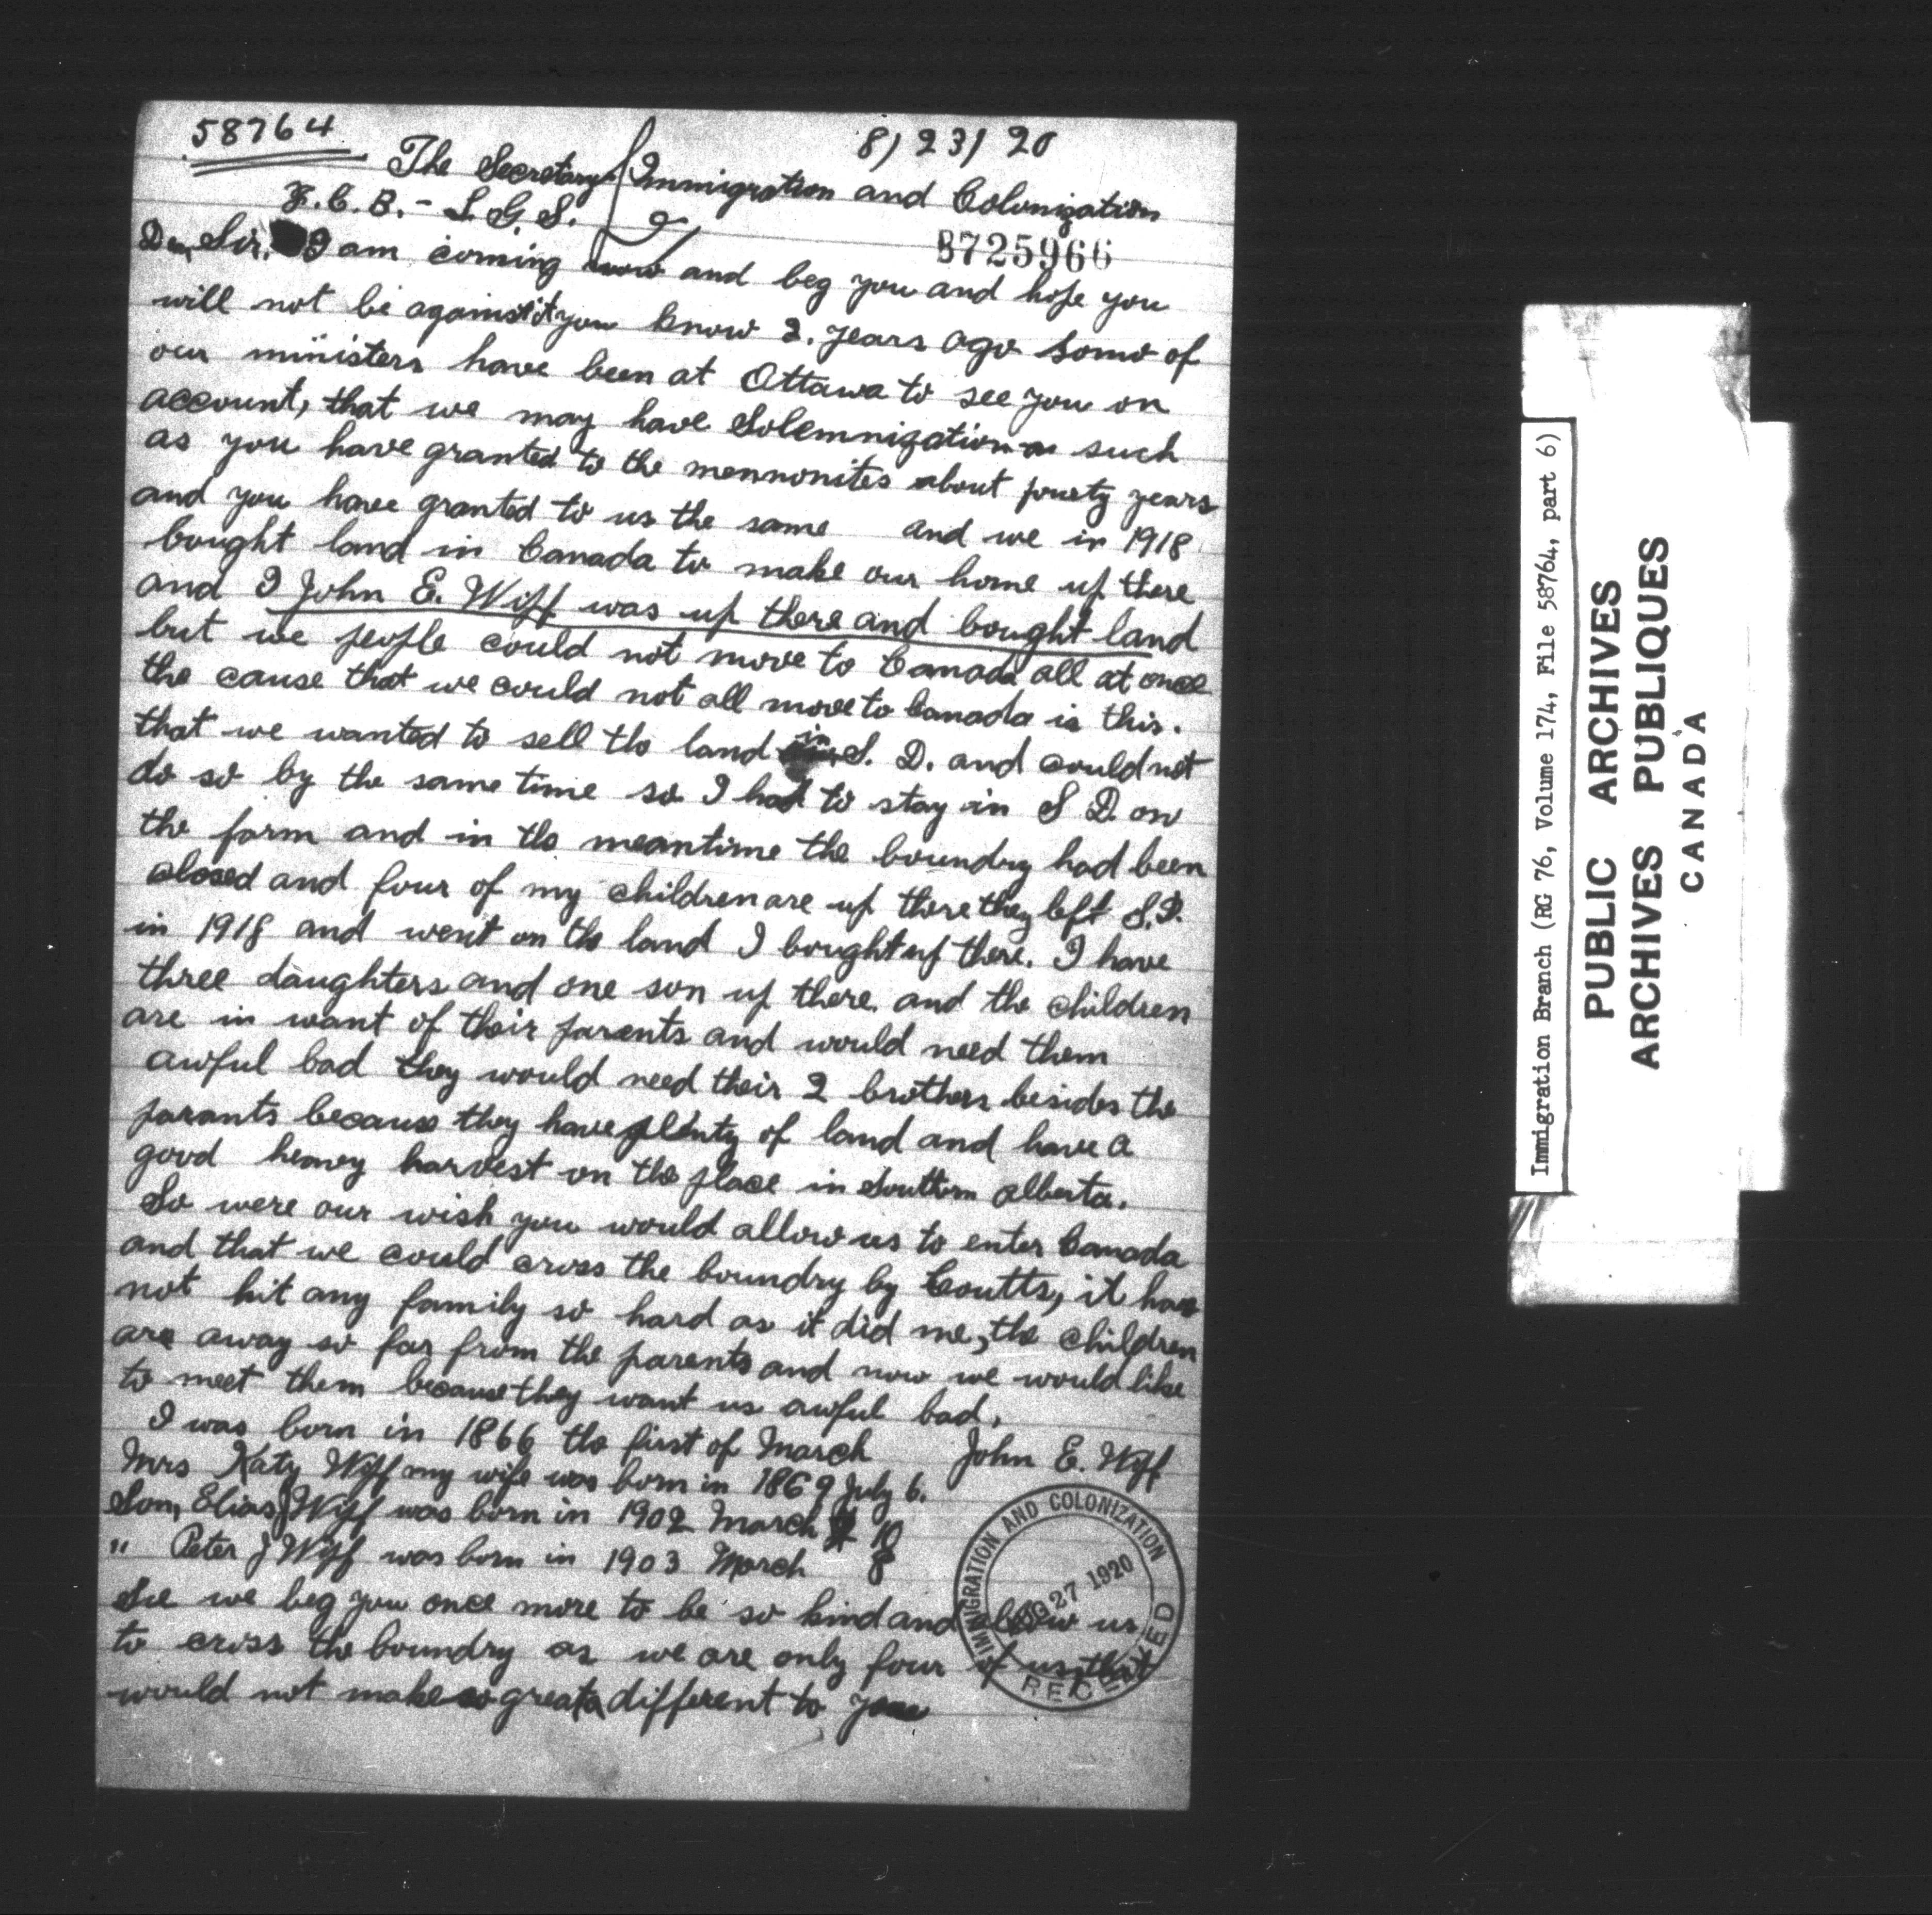 58764
8/23/20
The Secretary Immigration and Colonization
F.C.B. - L.G.S.
B725966
Dear Sir. I am coming now and beg you and hope you
will not be against it you know 2. years ago some of
our ministers have been at Ottawa to see you on
account, that we may have Solemnization as such
as you have granted to the mennonites about fourty years
and you have granted to us the same and we in 1918
bought land in Canada to make our home up there
and I John E. Wipf was up there and bought land
but we people could not move to Canada all at once
the cause that we could not all move to Canada is this.
that we wanted to sell the land in S. D. and could not
do so by the same time so I had to stay in S D. on
the farm and in the meantime the boundry had been
closed and four of my children are up there they left S.D.
in 1918 and went on the land I bought up there. I have
three daughters and one son up there and the children
are in want of their parents and would need them
awful bad they would need their 2 brothers besides the
parants because they have plenty of land and have a
good heavey harvest on the place in Southern Alberta.
So were our wish you would allow us to enter Canada
and that we could cross the boundry by Coutts, it has
not hit any family so hard as it did me, the children
are away so far from the parents and now we would like
to meet them because they want us awful bad,
I was born in 1866 the first of March John E. Wipf
Mrs Katy Wipf my wife was born in 1869 July 6.
Son, Elias J Wipf was born in 1902 March 10
" Peter J Wipf was born in 1903 March 8
So we beg you once more to be so kind and allow us
to cross the boundry as we are only four of us, that
would not make so great a different to you
IMMIGRATION AND COLONIZATION
AUG 27 1920
RECEIVED
Immigration Branch (RG 76, Volume 174, File 58764, part 6)
PUBLIC ARCHIVES
ARCHIVES PUBLIQUES
CANADA